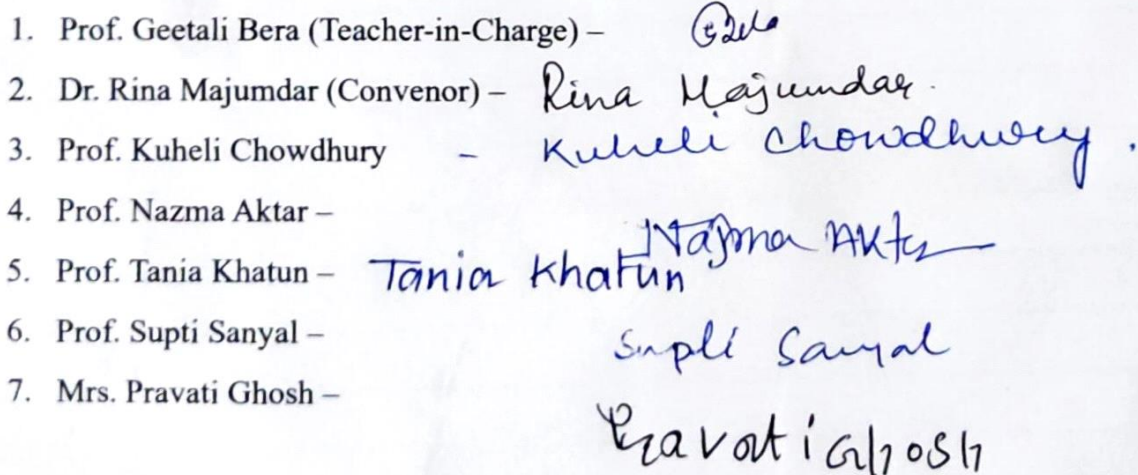 1. Prof. Geetali Bera (Teacher-in-Charge) –
2. Dr. Rina Majumdar (Convenor) – Rina Majumdar.
3. Prof. Kuheli Chowdhury - Kuheli Chowdhury.
4. Prof. Nazma Aktar – Najma Aktar
5. Prof. Tania Khatun – Tania Khatun
6. Prof. Supti Sanyal – Supti Sanyal
7. Mrs. Pravati Ghosh – Pravati Ghosh